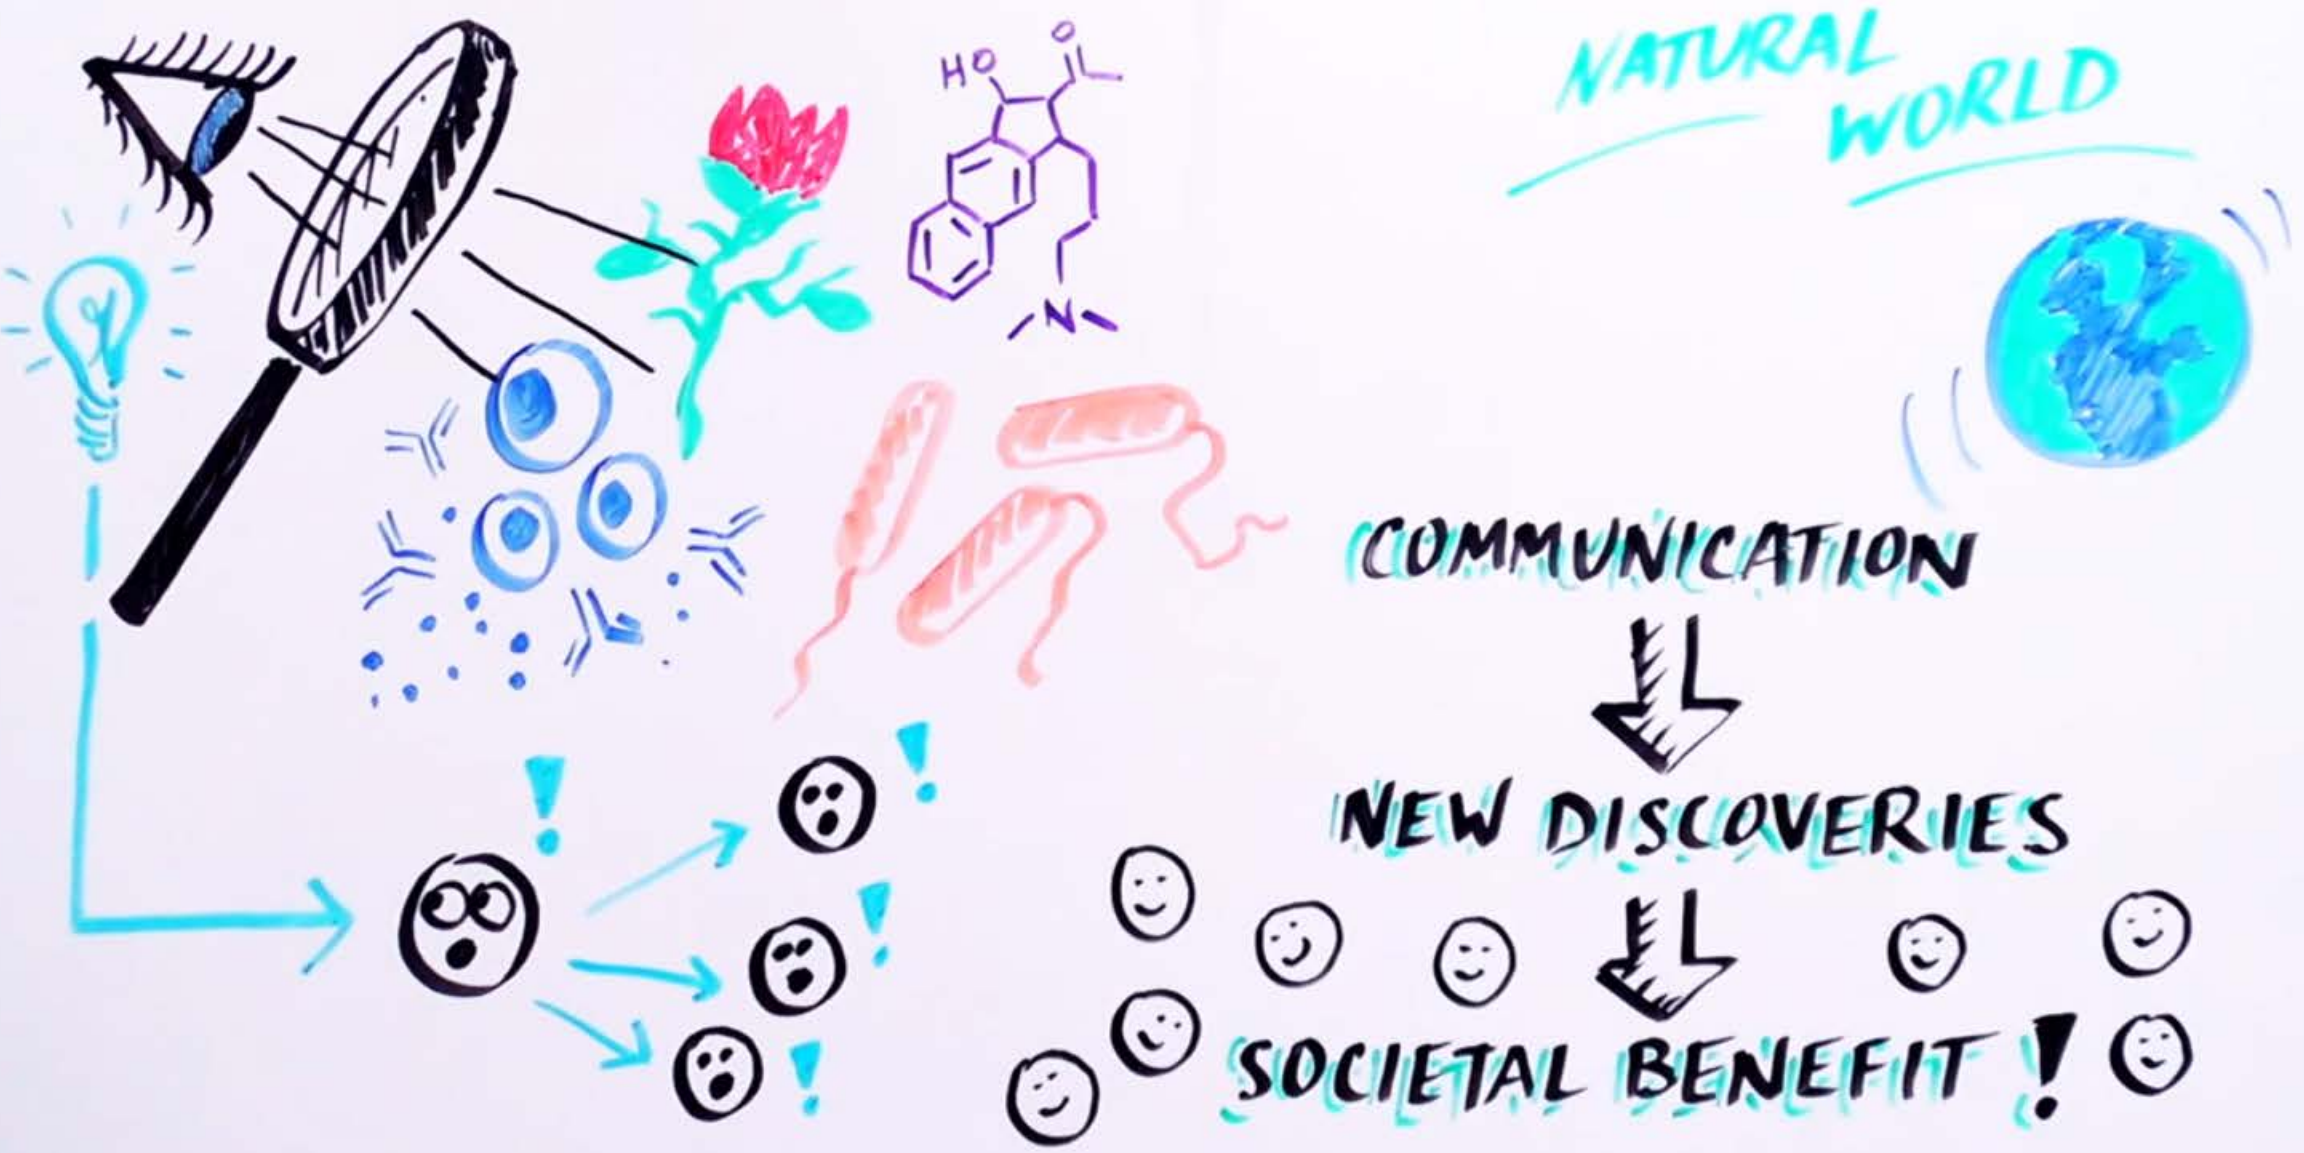 HO
O
N
NATURAL
WORLD
COMMUNICATION
NEW DISCOVERIES
SOCIETAL BENEFIT!
!
!
!
!